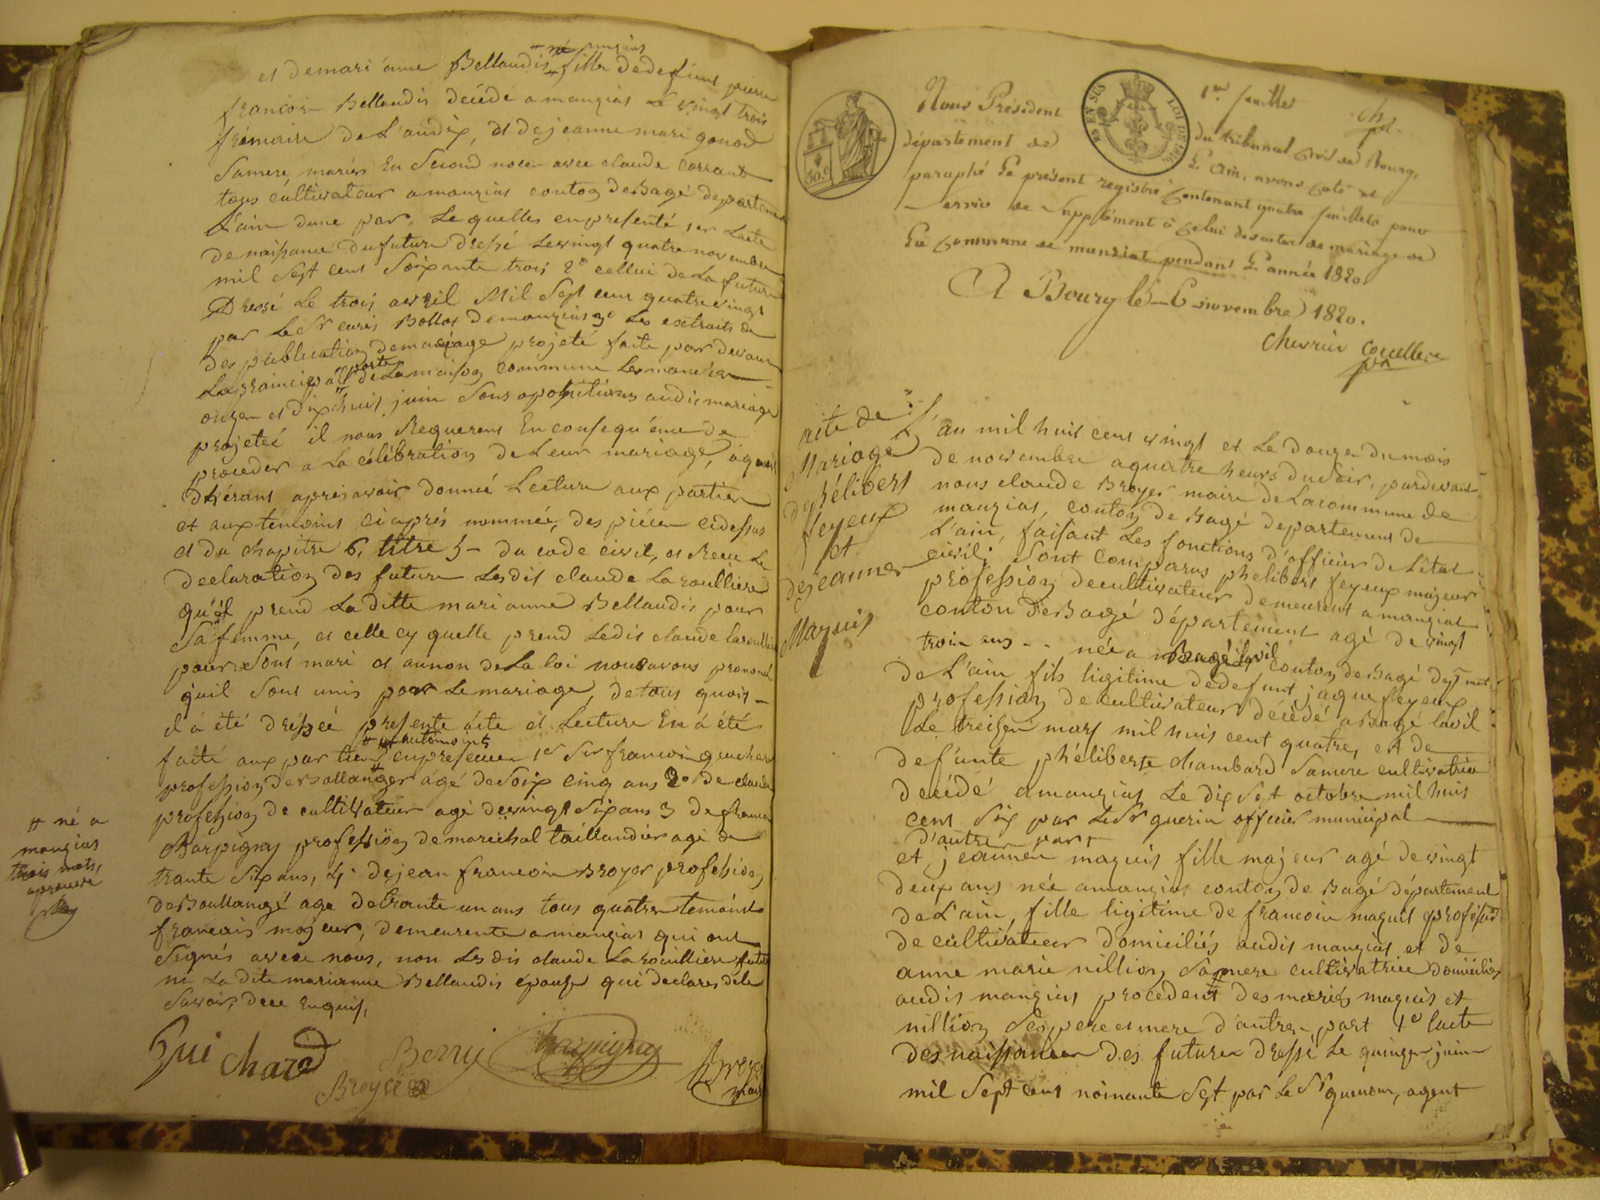 et de mari anne Bellaudis fille dedefunt pierre
# né manzias
francois Bellaudis décédé a manzias Le vingt trois
frimaire de L'an dix, et de jeanne mari gonod
Samere, mariés En Second noce avec claude
tous cultivateur a manzias conton de Bagé departement
L'ain dune par, Le quelles en presenté 1er Lacte
de naissance du future dressé Le vingt quatre novembre
mil Sept cens Soixante trois 2° cellui de La future
Dressé Le trois avril Mil Sept cens quatre vingt
par Le Sr curés Bollos de manzias 3° Les extraits de
des publication de mariage projeté faite par devans
La principall porte de La maison commune Les manches
onze et dix huit juin Sous opositions audit mariage
projeteé il nous Requerons En consequ'ence de
proceder a La célébration de Leur mariage, a quoi
dhérans apres avoir donneé Lecture aux partier
et aux témoins ci aprés nommée, des piéces cidessus
et du chapitre 6, titre 5 - du code civil, et Recu Le
declaration des future Les dit claude Laroulliere
qu'il prend La ditte mari anne Bellaudis pour
Sa femme, et celle cy quelle prend Ledit claude Laroulliere
pour Sont mari et au non de La loi nous avons prononcé
quil Sons unis par Le mariage, de tous quois -
il a été dréssé presente acte et Lecture En a été
faite aux par ties en presence 1er Sr francoi guichard
profession de Boullanger agé de Soix cinq ans 2° de claude
profession de cultivateur agé de vingt Six ans 3 de francois
Charpignay profession de marechal taillandier agé de
trante Six ans, 4° de jean francoin Broyer profession
de Boullangé age de trante un ans tous quatre temoins
francais mojeur, demeurente a manzias qui ont
Signés avece nous, non Les dis claude Laroulliere futur
ni La dite marianne Bellaudis épouse qui declares de le
Savoir, dece Enquis,
# né a
manzias
trois mots,
aprouvé
Guichard
Berry
Charpignay
Broyer
Broyer
maire
1er feuillet
Nous Président du tribunal civil de Bourg,
département de L'Ain, avons coté et
paraphé Le présent registre contenant quatre feuillets pour
Servir de Supplément à celui des actes de mariage de
La commune de manziat pendant L'année 1820
A Bourg le 6 novembre 1820.
acte de
Mariage
de phélibert
feyeux
et
de jeanne
Mazuis
L'an mil huit cens vingt et Le douze du mois
de novembre a quatre heurs du Soir, pardevans
nous claude Broyer maire de La commune de
manzias, conton de Bagé departement de
L'ain, faisant Les fonctions d'officier de L'état
civil; Sont comparus phelibert feyeux majeur
profession de cultivateur demeurent a manziat
conton de Bagé département agé de vingt
trois ans - - née a Bagé lavil conton de Bagé
de L'ain fils ligitime de defunt jaque feyeux
profession de cultivateur décédé a Bagé lavil
Le treize mars mil huit cent quatre, et de
defunte phéliberte chambard Samere cultivatrice
décédé a manzias Le dix Sept octobre mil huis
cens Six par Le Sr guerin officier municipal
d'autre part
et jeanne mazuis fille majeur agé de vingt
deux ans née a manzias conton de Bagé département
de L'ain, fille ligitime de francoin mazuis profession
de cultivateur domiciliés audit manzias et de
anne marie nillion Samere cultivatrice domicilié
audis manzias procedent des mariés mazuis et
nillion Ses pere et mere d'autre part 1er Lacte
des naissances des future dressé Le quinze juin
mil Sept cens nonante Sept par Le Sr guenon, agent